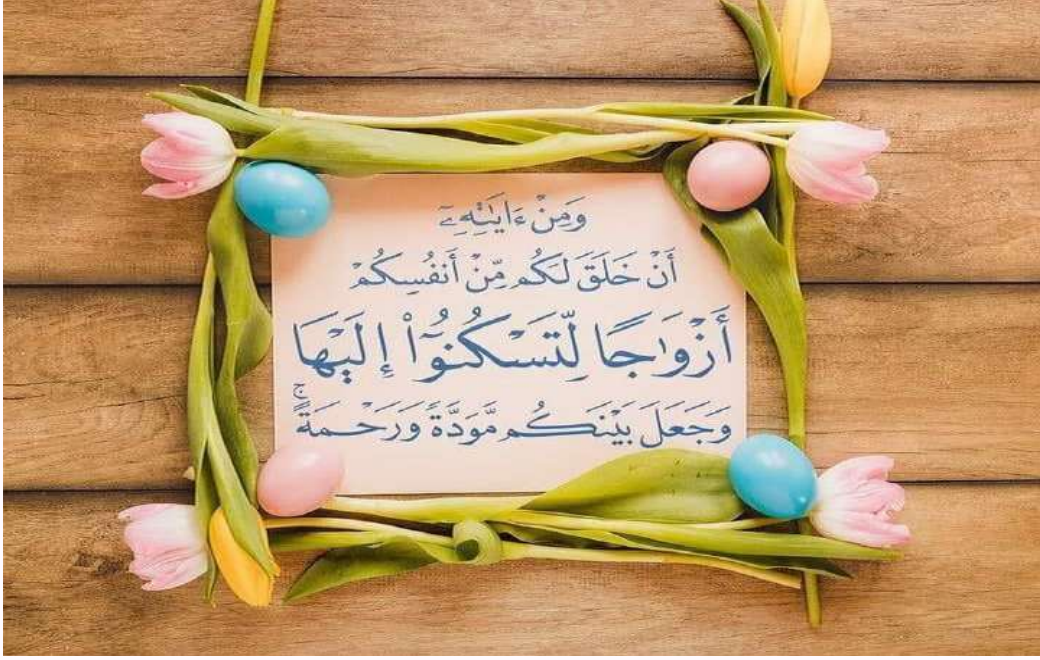 وَمِنْ ءَايَٰتِهِۦٓ
أَنْ خَلَقَ لَكُم مِّنْ أَنفُسِكُمْ
أَزْوَٰجًا لِّتَسْكُنُوٓا۟ إِلَيْهَا
وَجَعَلَ بَيْنَكُم مَّوَدَّةً وَرَحْمَةً ۚ